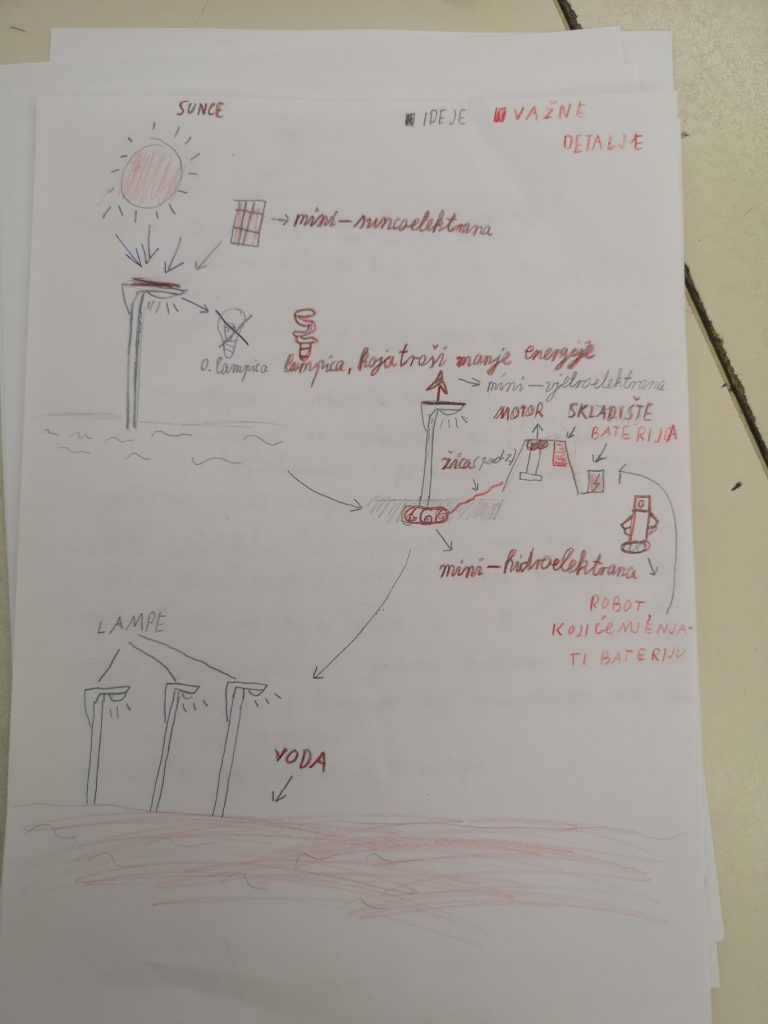 SUNCE
IDEJE
VAŽNE
DETALJE
mini-suncoelektrana
O. lampica
lampica, koja troši manje energije
mini-vjetroelektrana
MOTOR
SKLADIŠTE
BATERIJA
žica
mini-hidroelektrana
ROBOT,
KOJI ĆE MJENJA-
TI BATERIJU
LAMPE
VODA